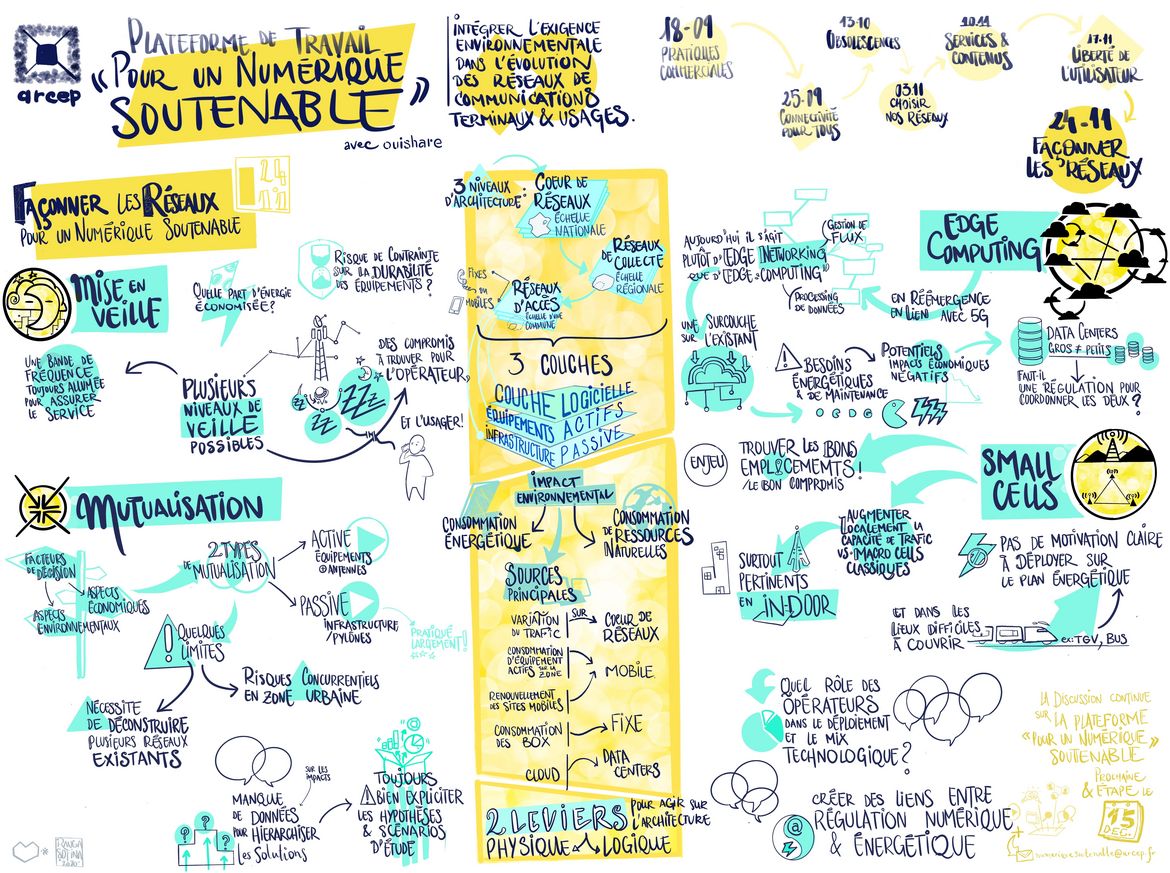 arcep
PLATEFORME DE TRAVAIL
« POUR UN NUMÉRIQUE
SOUTENABLE »
avec ouishare
INTÉGRER L'EXIGENCE
ENVIRONNEMENTALE
DANS L'ÉVOLUTION
DES RÉSEAUX DE
COMMUNICATIONS
TERMINAUX & USAGES.
18-09
PRATIQUES
COMMERCIALES
25.09
CONNECTIVITÉ
POUR TOUS
13-10
OBSOLESCENCES
03.11
CHOISIR
NOS RÉSEAUX
10.11
SERVICES &
CONTENUS
17.11
LIBERTÉ DE
L'UTILISATEUR
24-11
FAÇONNER
LES RÉSEAUX
FAÇONNER LES RÉSEAUX
POUR UN NUMÉRIQUE SOUTENABLE
24
11
MISE EN
VEILLE
QUELLE PART D'ÉNERGIE
ÉCONOMISÉE ?
RISQUE DE CONTRAINTE
SUR LA DURABILITÉ
DES ÉQUIPEMENTS ?
UNE BANDE DE
FRÉQUENCE
TOUJOURS ALLUMÉE
POUR ASSURER
LE SERVICE
PLUSIEURS
NIVEAUX DE
VEILLE
POSSIBLES
ZZ
ZZZ
ZZ
DES COMPROMIS
À TROUVER POUR
L'OPÉRATEUR,
ET L'USAGER !
MUTUALISATION
FACTEURS
DE DÉCISION
ASPECTS
ÉCONOMIQUES
ASPECTS
ENVIRONNEMENTAUX
2 TYPES
DE MUTUALISATION
ACTIVE
ÉQUIPEMENTS
⊕ ANTENNES
PASSIVE
INFRASTRUCTURE
/PYLÔNES
PRATIQUÉ
LARGEMENT !
QUELQUES
LIMITES
RISQUES CONCURRENTIELS
EN ZONE URBAINE
NÉCESSITÉ
DE DÉCONSTRUIRE
PLUSIEURS RÉSEAUX
EXISTANTS
SUR LES
IMPACTS
MANQUE
DE DONNÉES
POUR HIÉRARCHISER
LES SOLUTIONS
? ? ?
TOUJOURS
BIEN EXPLICITER
LES HYPOTHÈSES
& SCÉNARIOS
D'ÉTUDE
3 NIVEAUX
D'ARCHITECTURE
COEUR DE
RÉSEAUX
ÉCHELLE
NATIONALE
RÉSEAUX
DE COLLECTE
ÉCHELLE
RÉGIONALE
FIXES
OU
MOBILES
RÉSEAUX
D'ACCÈS
ÉCHELLE D'UNE
COMMUNE
3 COUCHES
COUCHE LOGICIELLE
ÉQUIPEMENTS ACTIFS
INFRASTRUCTURE PASSIVE
IMPACT
ENVIRONNEMENTAL
CONSOMMATION
ÉNERGÉTIQUE
CONSOMMATION
DE RESSOURCES
NATURELLES
SOURCES
PRINCIPALES
VARIATION
DU TRAFIC
SUR
COEUR DE
RÉSEAUX
CONSOMMATION
D'ÉQUIPEMENT
ACTIFS SUR LA ZONE
MOBILE
RENOUVELLEMENT
DES SITES MOBILES
CONSOMMATION
DES BOX
FIXE
CLOUD
DATA
CENTERS
2 LEVIERS
POUR AGIR SUR
L'ARCHITECTURE
PHYSIQUE
LOGIQUE
EDGE
COMPUTING
AUJOURD'HUI IL S'AGIT
PLUTÔT D'"EDGE NETWORKING
QUE D'"EDGE COMPUTING"
GESTION DE
FLUX
PROCESSING
DE DONNÉES
EN RÉÉMERGENCE
EN LIEN AVEC 5G
UNE SURCOUCHE
SUR L'EXISTANT
BESOINS
ÉNERGÉTIQUES
& DE MAINTENANCE
POTENTIELS
IMPACTS ÉCONOMIQUES
NÉGATIFS
DATA CENTERS
GROS ≠ PETITS
FAUT-IL
UNE RÉGULATION POUR
COORDONNER LES DEUX ?
SMALL
CELLS
ENJEU
TROUVER LES BONS
EMPLACEMENTS !
/LE BON COMPROMIS
AUGMENTER
LOCALEMENT LA
CAPACITÉ DE TRAFIC
VS. MACRO CELLS
CLASSIQUES
SURTOUT
PERTINENTS
EN IN-DOOR
PAS DE MOTIVATION CLAIRE
À DÉPLOYER SUR
LE PLAN ÉNERGÉTIQUE
ET DANS LES
LIEUX DIFFICILES
À COUVRIR
ex: TGV, BUS
QUEL RÔLE DES
OPÉRATEURS
DANS LE DÉPLOIEMENT
ET LE MIX
TECHNOLOGIQUE ?
@
CRÉER DES LIENS ENTRE
RÉGULATION NUMÉRIQUE
& ÉNERGÉTIQUE
LA DISCUSSION CONTINUE
SUR LA PLATEFORME
« POUR UN NUMÉRIQUE »
SOUTENABLE
PROCHAINE
& ÉTAPE LE
15
DEC.
numeriquesoutenable@arcep.fr